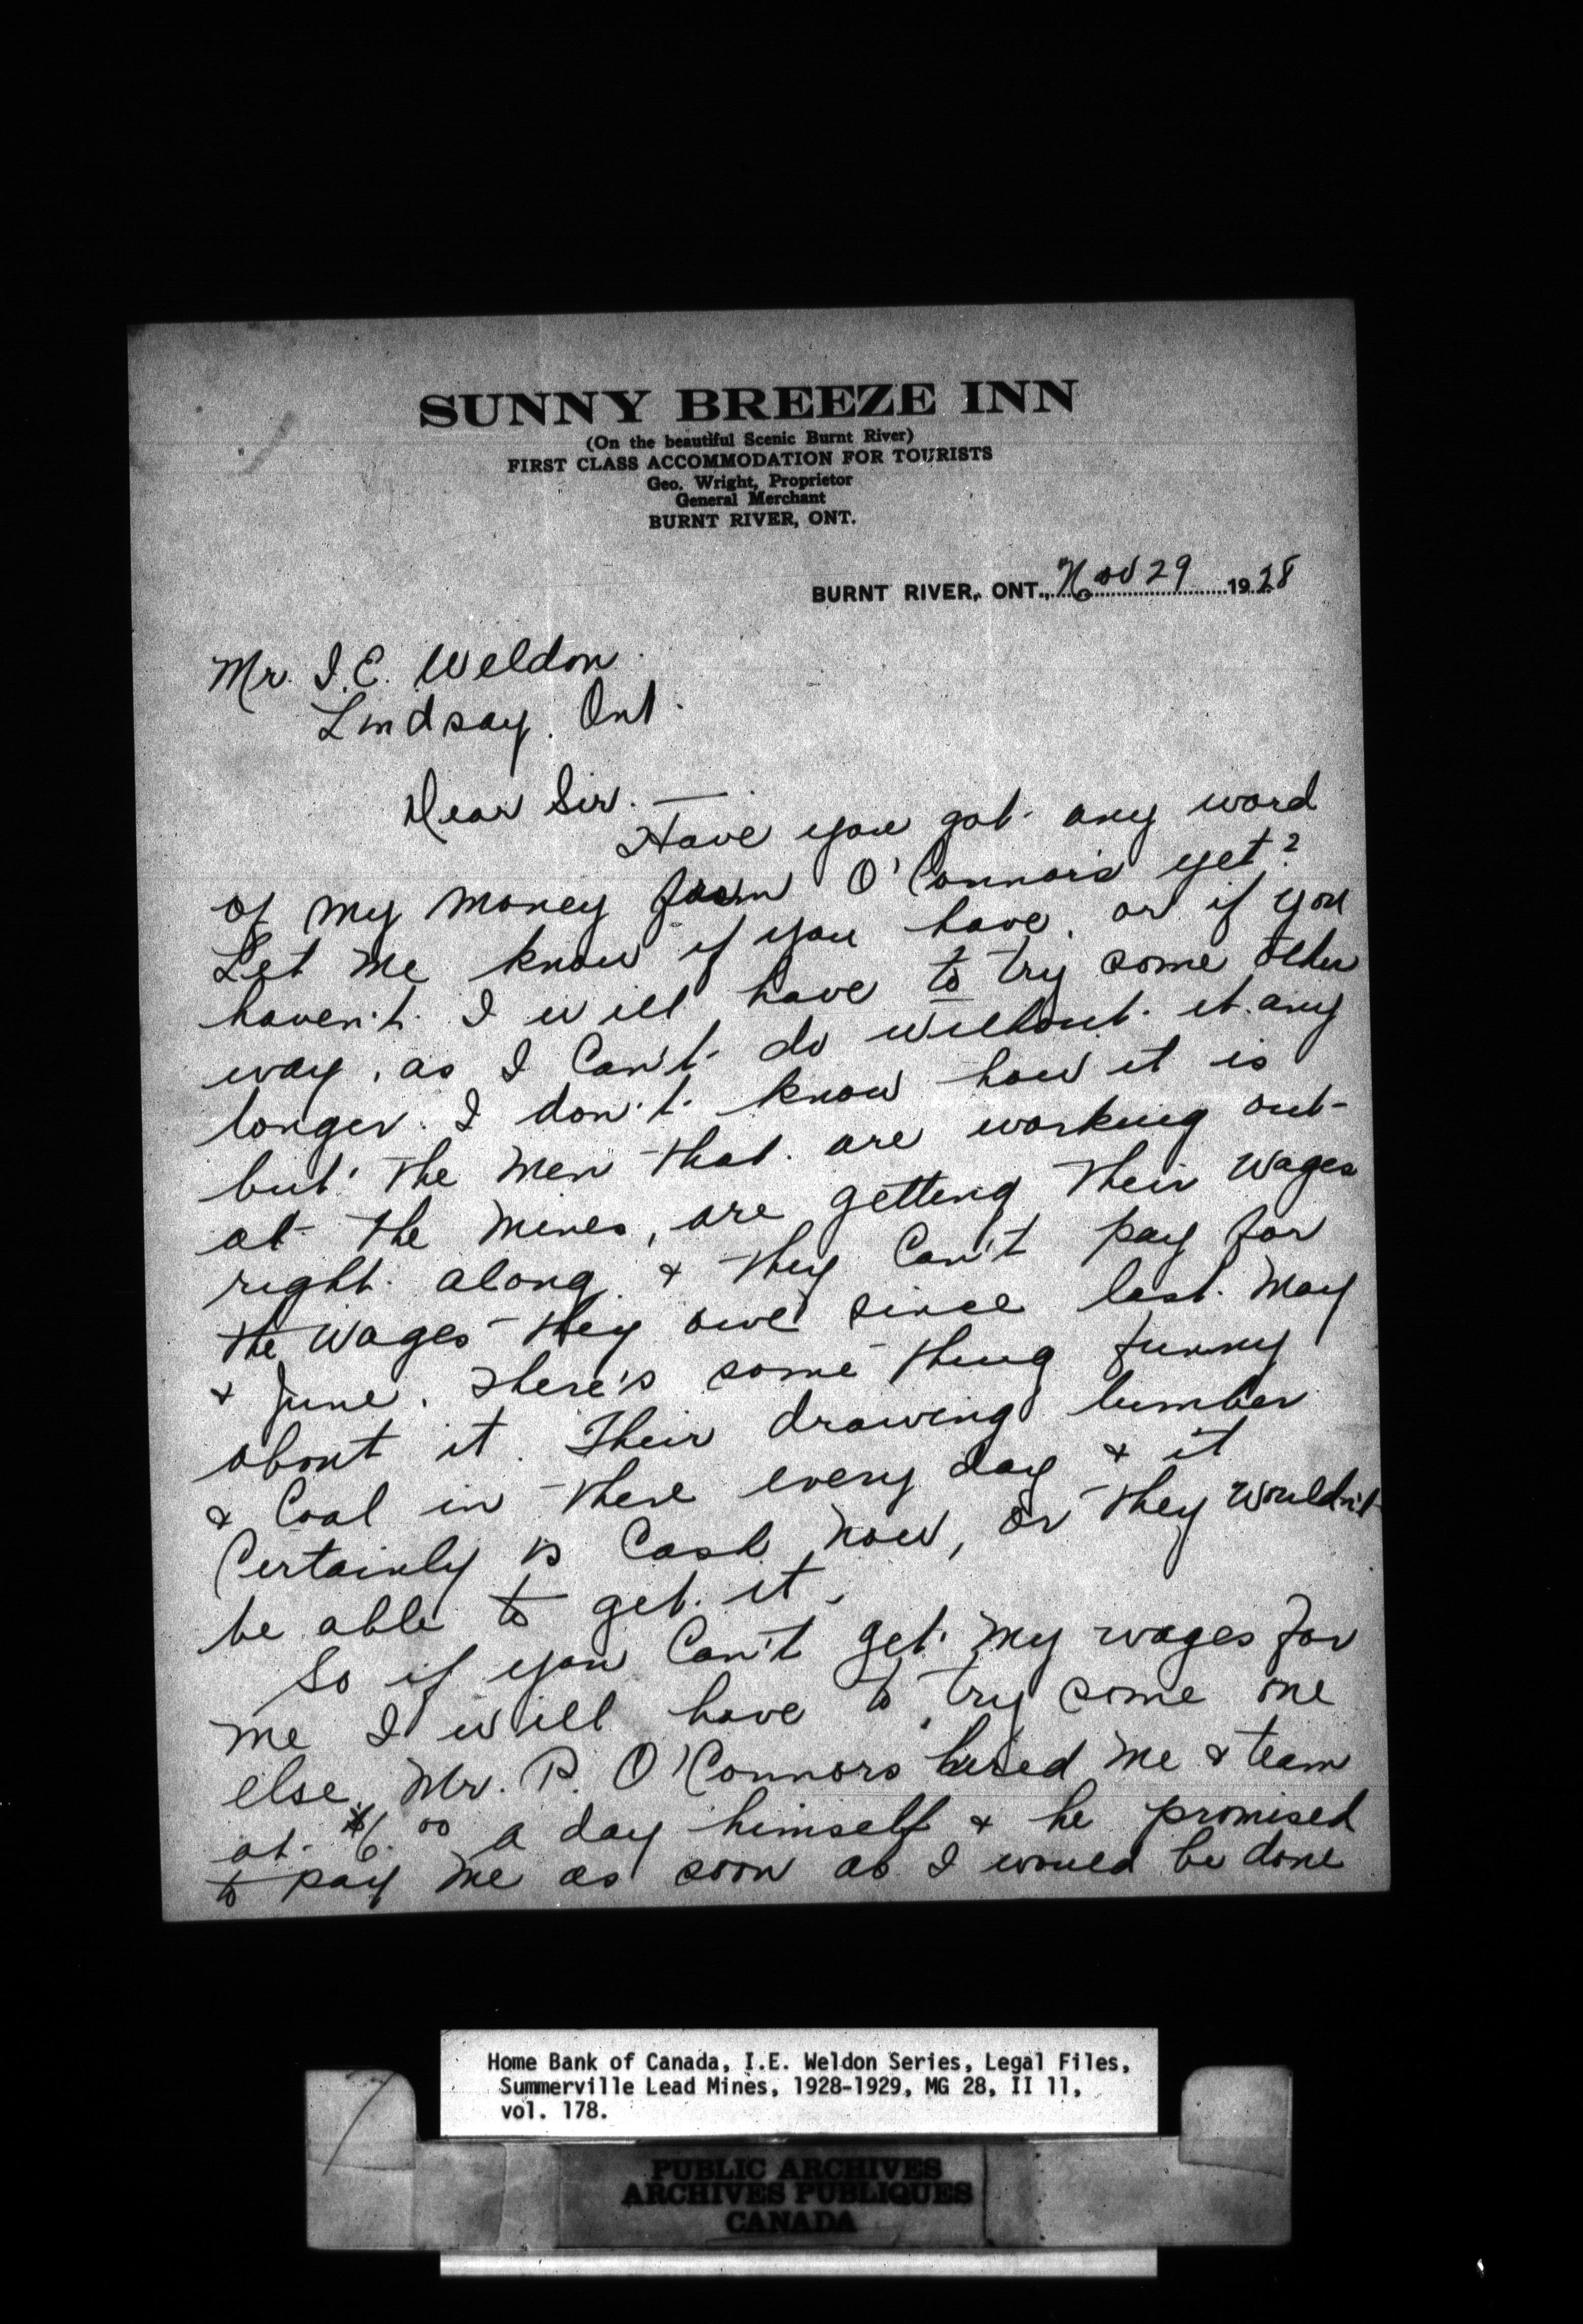 SUNNY BREEZE INN
(On the beautiful Scenic Burnt River)
FIRST CLASS ACCOMMODATION FOR TOURISTS
Geo. Wright, Proprietor
General Merchant
BURNT RIVER, ONT.
BURNT RIVER, ONT., Nov 29 1928
Mr. I. E. Weldon
Lindsay. Ont.
Dear Sir. —
Have you got any word
of my money from O'Connors yet?
Let me know if you have, or if you
haven't. I will have to try some other
way, as I Can't do without it any
longer. I don't know how it is
but the men that are working out
at the mines, are getting their wages
right along & they Can't pay for
the wages they owe since last May
& June. There's some thing funny
about it. Their drawing lumber
& Coal in there every day & it
Certainly is Cash now, or they wouldn't
be able to get it.
So if you Can't get my wages for
me I will have to try some one
else. Mr. P. O'Connors hired me & team
at $6.00 a day himself & he promised
to pay me as soon as I would be done
Home Bank of Canada, I.E. Weldon Series, Legal Files,
Summerville Lead Mines, 1928-1929, MG 28, II 11,
vol. 178.
PUBLIC ARCHIVES
ARCHIVES PUBLIQUES
CANADA